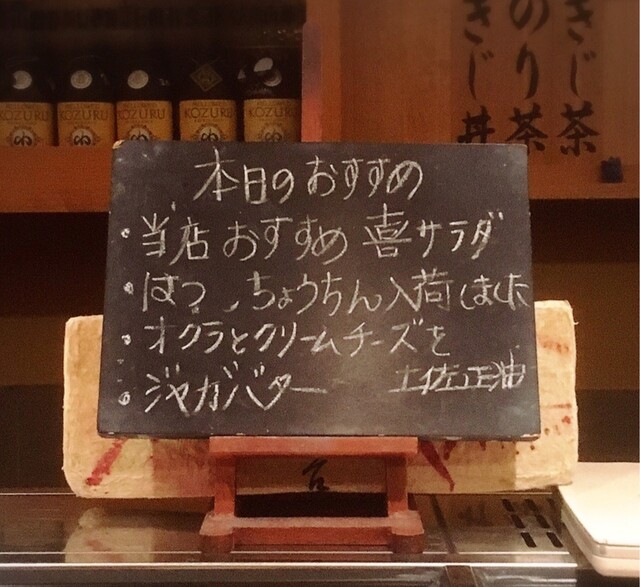 KOZURU KOZURU KOZURU KOZURU KOZURU
きじ茶
のり茶
きじ丼
本日のおすすめ
・当店おすすめ 喜サラダ
・はつ、ちょうちん入荷しました
・オクラとクリームチーズを
・ジャガバター 土佐正油